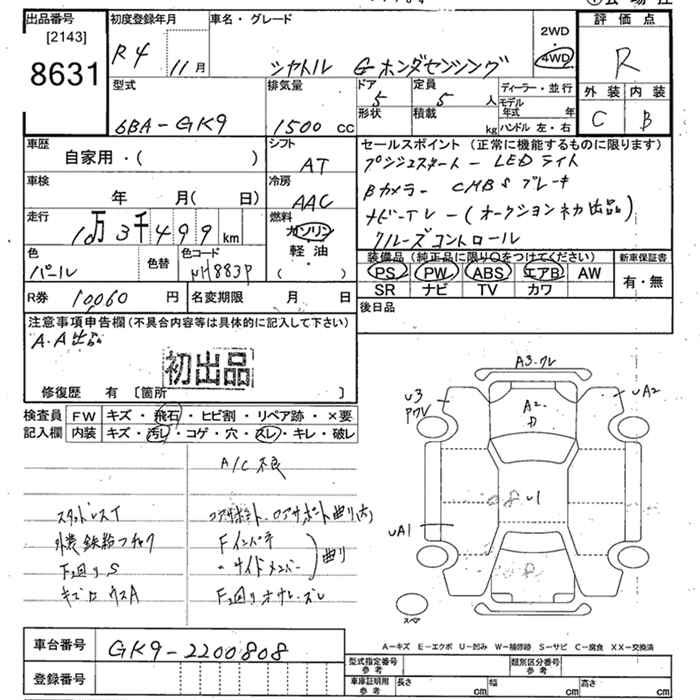 出品番号 初度登録年月 車名・グレード 評価点
[2143]
8631
R4 11月 シャトル Gホンダセンシング 2WD 4WD R
型式 排気量 ドア 5 定員 5 人 ディーラー・並行 外装 内装
6BA-GK9 1500 cc 形状 積載 kg モデル年式 年 ハンドル 左・右 C B
車歴 自家用・( ) シフト AT セールスポイント(正常に機能するものに限ります)
プッシュスタート LEDライト
車検 年 月(日) 冷房 AAC Bカメラー CMBSブレーキ
走行 10万3千499km 燃料 ガソリン・軽油・( ) ナビーTVー(オークションネカ出品)
クルーズコントロール
色 パール 色替 色コード NH883P
装備品(純正品に限り○をつけてください) 新車保証書
PS PW ABS エアB AW 有・無
SR ナビ TV カワ
R券 10060円 名変期限 月 日 後日品
注意事項申告欄(不具合内容等は具体的に記入して下さい)
A.A出品
初出品
修復歴 有 〔箇所 〕
検査員 FW キズ・飛石・ヒビ割・リペア跡・×要
記入欄 内装 キズ・汚レ・コゲ・穴・スレ・キレ・破レ
A/C不良
スタッドレスT
F2回りS
Fインパネ
サイドメンバー 曲り
A3.クレ
U3
UA2
A2
U1
UA1
スペア
A-キズ E-エクボ U-凹み W-補修跡 S-サビ C-腐食 XX-交換済
車台番号 GK9-2200808
登録番号
型式指定番号 参考 類別区分番号 参考
車庫証明用 参考 長さ cm 幅 cm 高さ cm